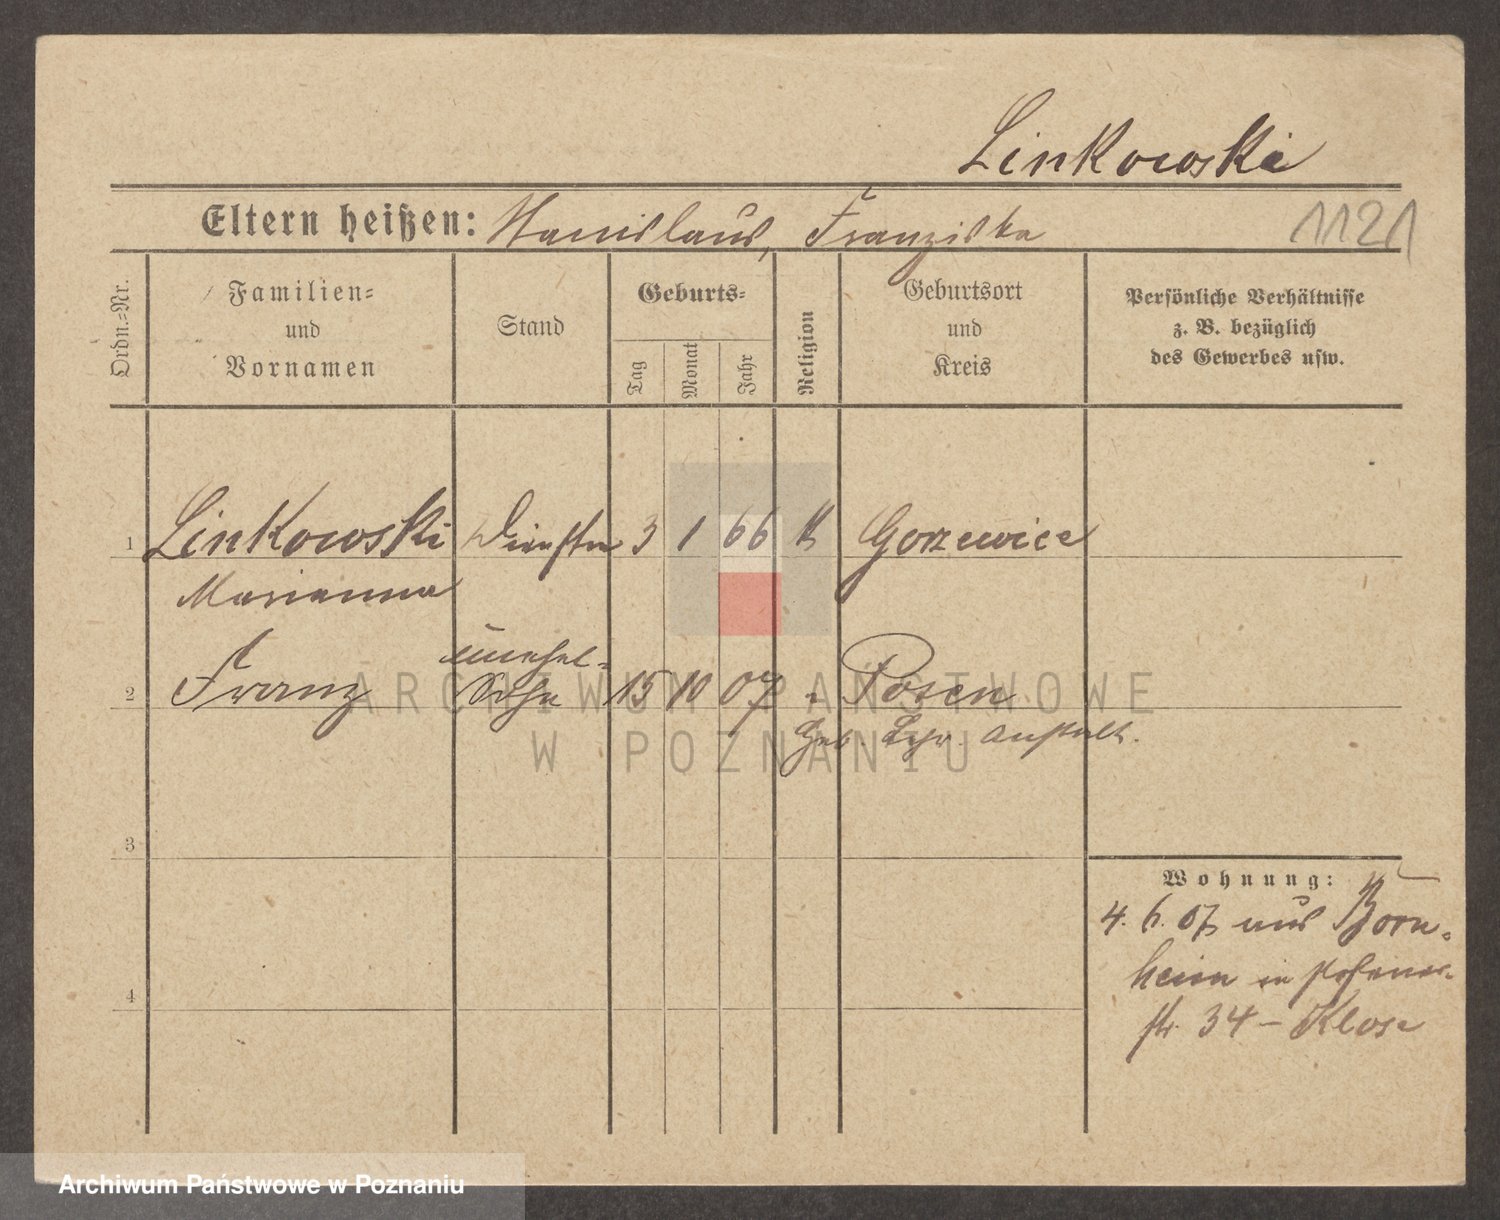 Linkowski
Eltern heißen: Stanislaus, Franziska
1121
Ordn.=Nr.
Familien=
und
Vornamen
Stand
Geburts=
Tag
Monat
Jahr
Religion
Geburtsort
und
Kreis
Persönliche Verhältnisse
z. B. bezüglich
des Gewerbes usw.
1 Linkowski 3 1 66 K Gorzewice
Marianna
unehel-
2 Franz Sohn 15 10 07 " Posen
Geb. Anstalt.
3
Wohnung:
4. 6. 07 aus Born-
heim in
str. 34 - Klose
4
ARCHIWUM PAŃSTWOWE
W POZNANIU
Archiwum Państwowe w Poznaniu